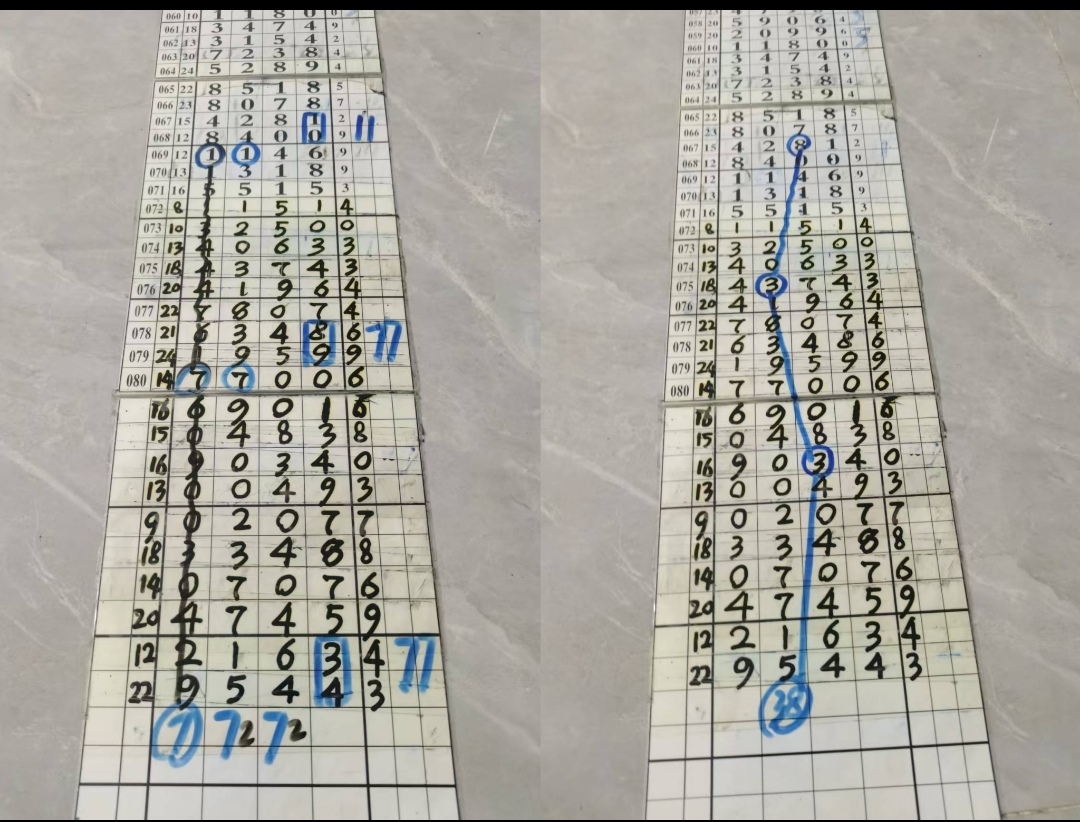 060 10 1 1 8 0 0
061 18 3 4 7 4 9
062 13 3 1 5 4 2
063 20 7 2 3 8 4
064 24 5 2 8 9 4
065 22 8 5 1 8 5
066 23 8 0 7 8 7
067 15 4 2 8 1 2 11
068 12 8 4 0 0 9
069 12 1 1 4 6 9
070 13 1 3 1 8 9
071 16 5 5 1 5 3
072 8 1 1 5 1 4
073 10 3 2 5 0 0
074 13 4 0 6 3 3
075 18 4 3 7 4 3
076 20 4 1 9 6 4
077 22 7 8 0 7 4
078 21 6 3 4 8 6 77
079 24 1 9 5 9 9
080 14 7 7 0 0 6
16 6 9 0 1 6
15 0 4 8 3 8
16 9 0 3 4 0
13 0 0 4 9 3
9 0 2 0 7 7
18 3 3 4 8 8
14 0 7 0 7 6
20 4 7 4 5 9
12 2 1 6 3 4 77
22 9 5 4 4 3
7 72 72
058 20 5 9 0 6 4
059 20 2 0 9 9 6
060 10 1 1 8 0 0
061 18 3 4 7 4 9
062 13 3 1 5 4 2
063 20 7 2 3 8 4
064 24 5 2 8 9 4
065 22 8 5 1 8 5
066 23 8 0 7 8 7
067 15 4 2 8 1 2
068 12 8 4 0 0 9
069 12 1 1 4 6 9
070 13 1 3 1 8 9
071 16 5 5 1 5 3
072 8 1 1 5 1 4
073 10 3 2 5 0 0
074 13 4 0 6 3 3
075 18 4 3 7 4 3
076 20 4 1 9 6 4
077 22 7 8 0 7 4
078 21 6 3 4 8 6
079 24 1 9 5 9 9
080 14 7 7 0 0 6
16 6 9 0 1 6
15 0 4 8 3 8
16 9 0 3 4 0
13 0 0 4 9 3
9 0 2 0 7 7
18 3 3 4 8 8
14 0 7 0 7 6
20 4 7 4 5 9
12 2 1 6 3 4
22 9 5 4 4 3
38